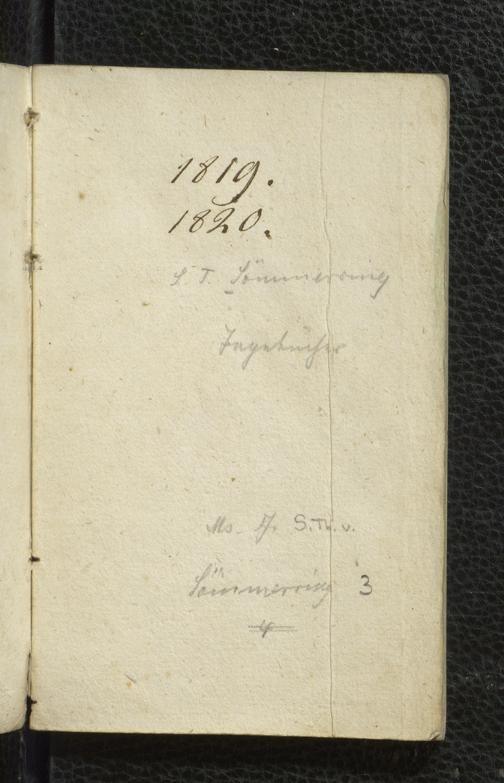 1819.
1820.
S. T. Sömmerring
Tagebücher
Ms. Ff. S.Th.v.
Sömmerring 3
4